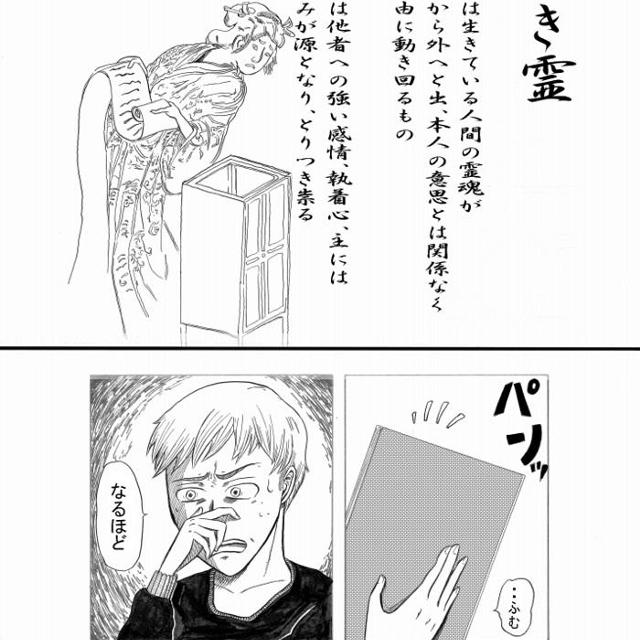 き霊
は生きている人間の霊魂が
から外へと出、本人の意思とは関係なく
由に動き回るもの
は他者への強い感情、執着心、主には
みが源となり、とりつき祟る
パンッ
・・ふむ
なるほど